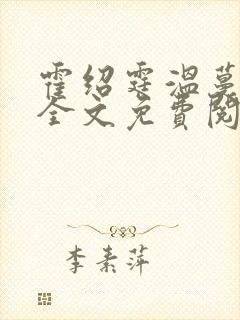 霍绍霆温蔓
全文免费阅
李素萍